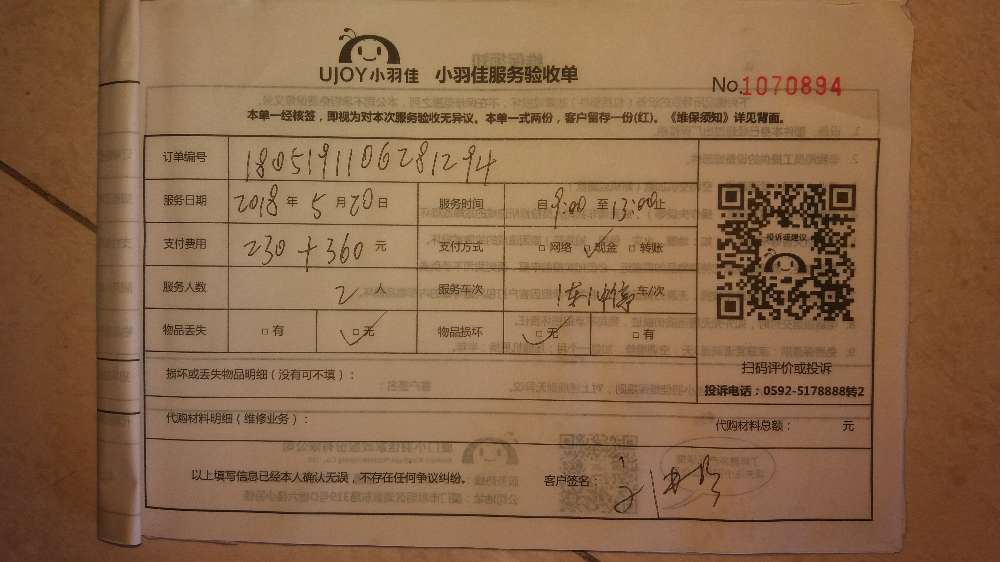 UJOY小羽佳 小羽佳服务验收单
No.1070894
本单一经核签，即视为对本次服务验收无异议。本单一式两份，客户留存一份(红)。《维保须知》详见背面。
订单编号 1805191106281294
服务日期 2018 年 5 月 20 日 服务时间 自 9:00 至 13:00 止
支付费用 230+360 元 支付方式 □ 网络 ☑ 现金 □ 转账
服务人数 2 人 服务车次 车/次
物品丢失 □ 有 ☑ 无 物品损坏 ☑ 无 □ 有
投诉或建议
扫码评价或投诉
投诉电话：0592-5178888转2
损坏或丢失物品明细（没有可不填）：
代购材料明细（维修业务）： 代购材料总额： 元
以上填写信息已经本人确认无误，不存在任何争议纠纷。 客户签名：